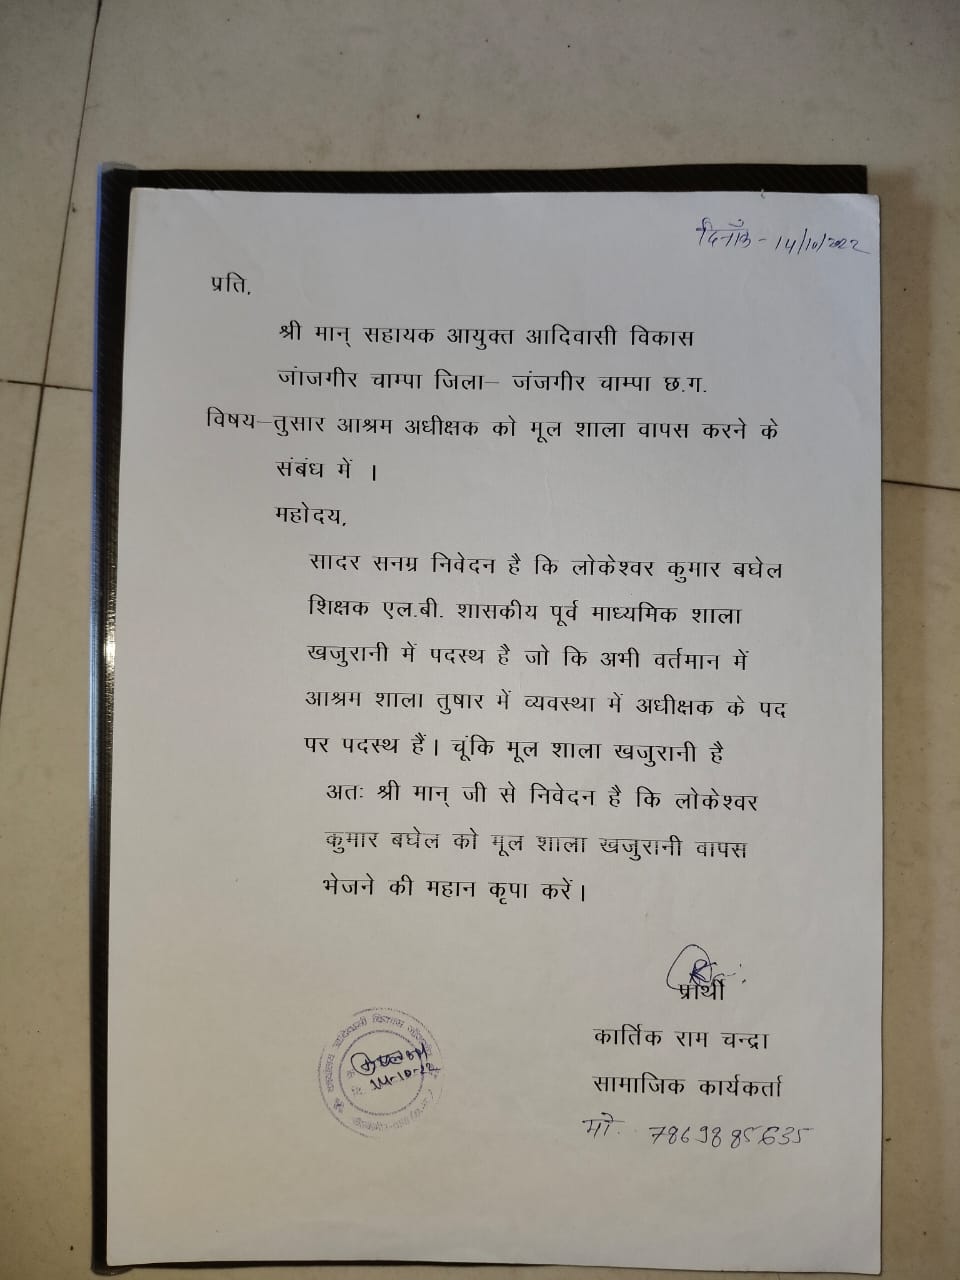 दिनाँक - 14/10/2022
प्रति,
श्री मान् सहायक आयुक्त आदिवासी विकास
जांजगीर चाम्पा जिला– जंजगीर चाम्पा छ.ग.
विषय–तुसार आश्रम अधीक्षक को मूल शाला वापस करने के
संबंध में ।
महोदय,
सादर सनम्र निवेदन है कि लोकेश्वर कुमार बघेल
शिक्षक एल.बी. शासकीय पूर्व माध्यमिक शाला
खजुरानी में पदस्थ है जो कि अभी वर्तमान में
आश्रम शाला तुषार में व्यवस्था में अधीक्षक के पद
पर पदस्थ हैं। चूंकि मूल शाला खजुरानी है
अतः श्री मान् जी से निवेदन है कि लोकेश्वर
कुमार बघेल को मूल शाला खजुरानी वापस
भेजने की महान कृपा करें।
प्रार्थी
कार्तिक राम चन्द्रा
सामाजिक कार्यकर्ता
मो. 7869885635
आदिवासी विकास
14-10-22